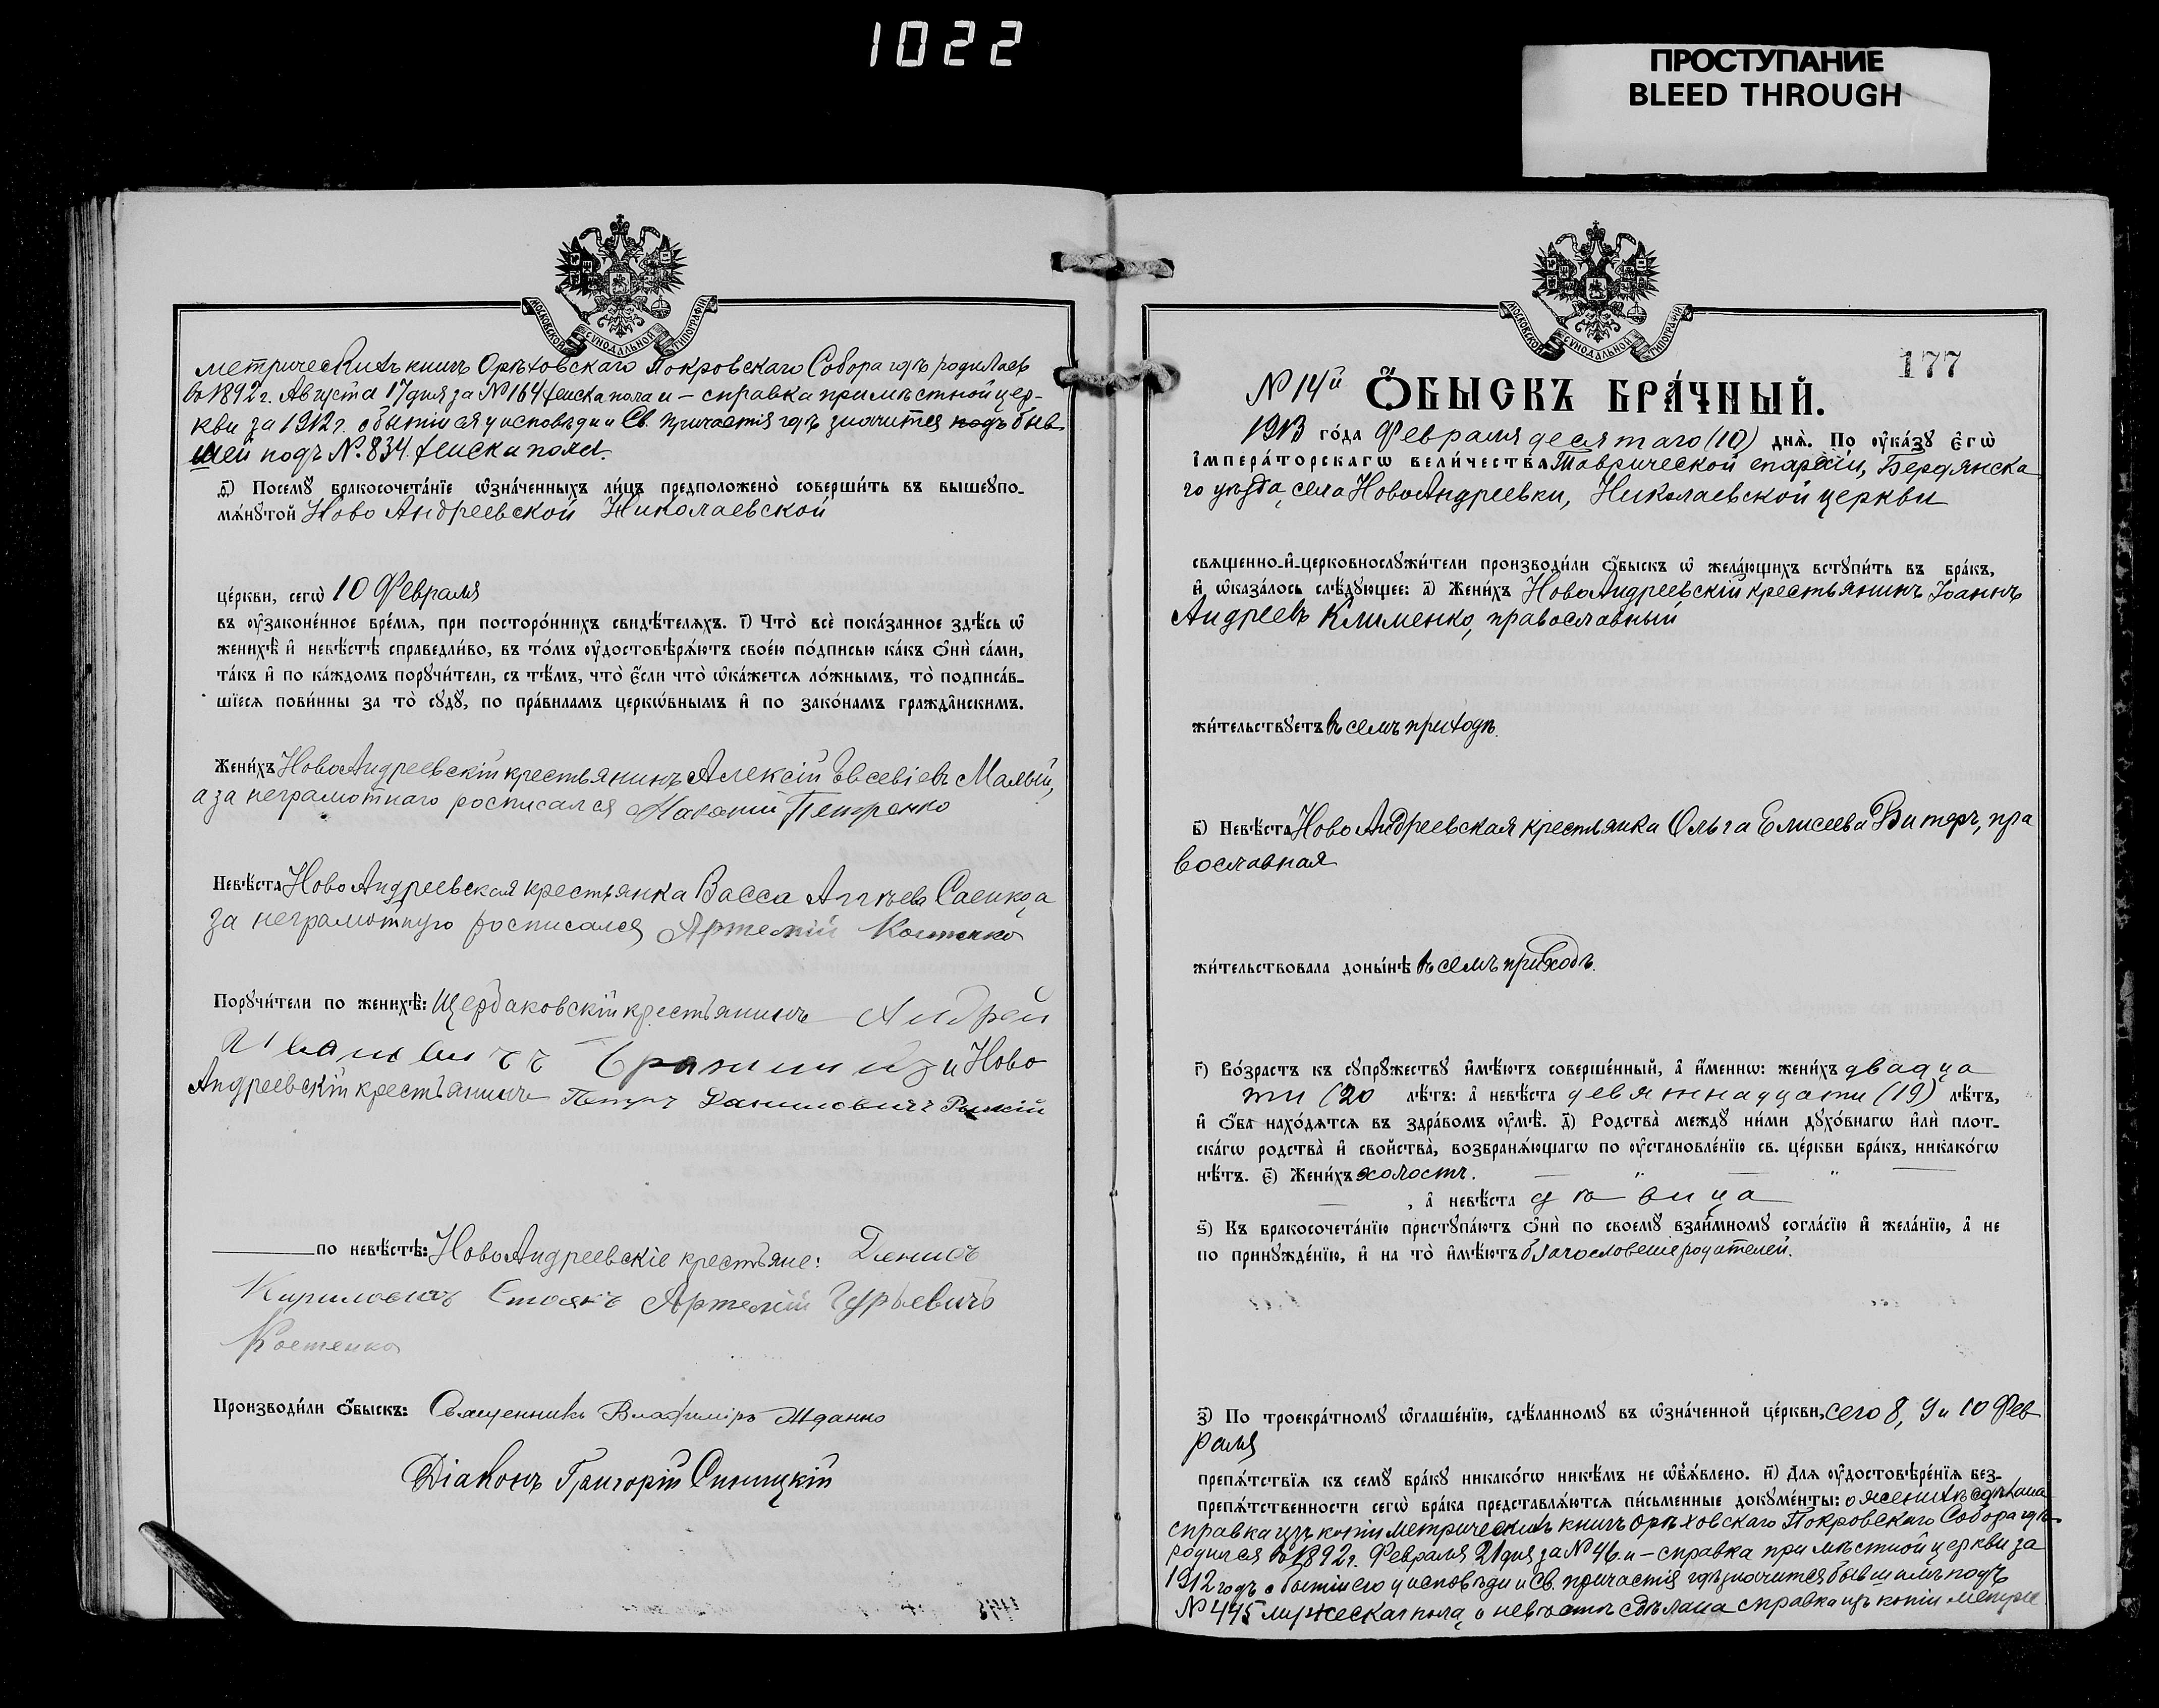 1022
ПРОСТУПАНИЕ
BLEED THROUGH
МОСКОВСКОЙ СѴНОДАЛЬНОЙ ТИПОГРАФІИ
метрическихъ книгъ Орѣховскаго Покровскаго Собора гдѣ родилась
въ 1892 г. Августа 17 дня за № 164 женска пола и – справка при мѣстной цер-
кви за 1912 г. о бытіи ея у исповѣди и Св. Причастія гдѣ значится подъ быв
шей подъ №. 834. женска пола.
ѳ҃) Посемꙋ̀ бракосочета́нїе ѡ҆зна́ченныхъ ли́цъ предположено̀ соверши́ть въ вышеꙋпо-
мѧ́нꙋтой Ново Андреевской Николаевской
це́ркви, сегѡ̀ 10 Февраля
въ ᲂу҆законе́нное вре́мѧ, при посторо́ннихъ свидѣ́телѧхъ. і҃) Что̀ всѐ пока́занное здѣ́сь ѡ҆
женихѣ̀ и҆ невѣ́стѣ справедли́во, въ то́мъ ᲂу҆достовѣрѧ́ютъ свое́ю по́дписью ка́къ ѻ҆нѝ са́ми,
та́къ и҆ по ка́ждомъ порꙋчи́тели, съ тѣ́мъ, что̀ є҆́сли что̀ ѡ҆ка́жетсѧ ло́жнымъ, то̀ подписа́в-
шїесѧ пови́нны за то̀ сꙋдꙋ̀, по пра́виламъ церкѡ́внымъ и҆ по зако́намъ гражда̂нскимъ.
Жени́хъ НовоАндреевскій крестьянинъ Алексій Евсевіевъ Малый,
а за неграмотнаго росписался Петренко
Невѣ́ста Ново Андреевская крестьянка Васса Аггѣева Саенко, а
за неграмотную росписался Артемій Костенко
Порꙋчи́тели по женихѣ̀: Щербаковскій крестьянинъ Андрей
Ивановичъ и Ново
Андреевскій крестьянинъ Петръ Даниловичъ
по невѣ́стѣ: НовоАндреевскіе крестьяне: Денисъ
Кириловичъ Стоякъ Артемій Гурьевичъ
Костенко
Производи́ли ѻ҆́быскъ: Священникъ Владиміръ Жданко
Діаконъ Григорій Синицкій
МОСКОВСКОЙ СѴНОДАЛЬНОЙ ТИПОГРАФІИ
177
№ 14й Ѻ҆́БЫСКЪ БРА́ЧНЫЙ.
1913 го́да Февраля десятаго (10) днѧ̀. По ᲂу҆ка́зꙋ Є҆гѡ̀
І҆мпера́торскагѡ вели́чества Таврической епархіи, Бердянска
го уѣзда, села НовоАндреевки, Николаевской церкви
свѧщенно-и҆-церковнослꙋжи́тели производи́ли ѻ҆́быскъ ѡ҆ жела́ющихъ встꙋпи́ть въ бра́къ,
и҆ ѡ҆каза́лось слѣ́дꙋющее: а҃) Жени́хъ НовоАндреевскій крестьянинъ Іоаннъ
Андреевъ Клименко, православный
жи́тельствꙋетъ въ семъ приходѣ.
в҃) Невѣ́ста Ново Андреевская крестьянка Ольга Елисеева Витеръ, пра
вославная
жи́тельствовала доны́нѣ въ семъ приходѣ.
г҃) Во́зрастъ къ сꙋпрꙋ́жествꙋ и҆мѣ́ютъ соверше́нный, а҆ и҆́меннѡ: жени́хъ двадца
ти (20 лѣ́тъ: а҆ невѣ́ста девятнадцати (19) лѣ́тъ,
и҆ ѻ҆́ба нахо́дѧтсѧ въ здра́вомъ ᲂу҆мѣ̀. д҃) Родства̀ междꙋ̀ ни́ми дꙋхо́внагѡ и҆лѝ плот-
ска́гѡ родства̀ и҆ сво́йства̀, возбранѧ́ющагѡ по ᲂу҆становле́нїю св. це́ркви бра́къ, никако́гѡ
нѣ́тъ. є҃) Жени́хъ холостъ. — " — " —
— , а҆ невѣ́ста дѣвица
ѕ҃) Къ бракосочета́нїю пристꙋпа́ютъ ѻ҆нѝ по своемꙋ̀ взаи́мномꙋ согла́сїю и҆ жела́нїю, а҆ не
по принꙋжде́нїю, и҆ на то̀ и҆мѣ́ютъ благословеніе родителей.
з҃) По троекра́тномꙋ ѡ҆глаше́нїю, сдѣ́ланномꙋ въ ѡ҆зна́ченной це́ркви, сего 8, 9 и 10 Фев
раля
препѧ́тствїѧ къ семꙋ̀ бра́кꙋ никако́гѡ никѣ́мъ не ѡ҆б̾ѧ́влено. и҃) Длѧ ᲂу҆достовѣре́нїѧ без-
препѧ́тственности сегѡ̀ бра́ка представлѧ́ютсѧ пи́сьменные докꙋме́нты: о женихѣ сдѣлана
справка изъ копіи метрическихъ книгъ Орѣховскаго Покровскаго Собора гдѣ
родился въ 1892 г. Февраля 21 дня за № 46. и – справка при мѣстной церкви за
1912 годъ о бытіи его у исповѣди и Св. причастія гдѣ значится бывшимъ подъ
№ 445 мужеска пола, о невѣстѣ сдѣлана справка изъ копіи метри